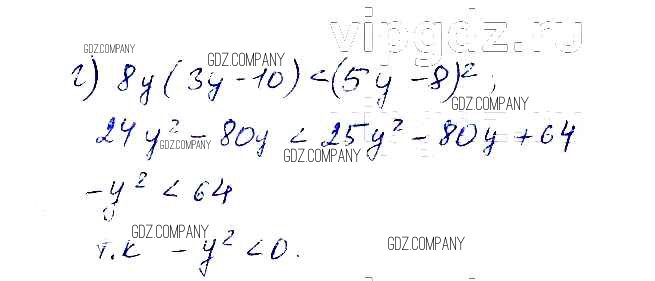 vipgdz.ru
GDZ.COMPANY
GDZ.COMPANY
г) 8y(3y-10)<(5y-8)²;
GDZ.COMPANY
24y²-80y<25y²-80y+64
GDZ.COMPANY
GDZ.COMPANY
-y²<64
GDZ.COMPANY
GDZ.COMPANY
т.к -y²<0.